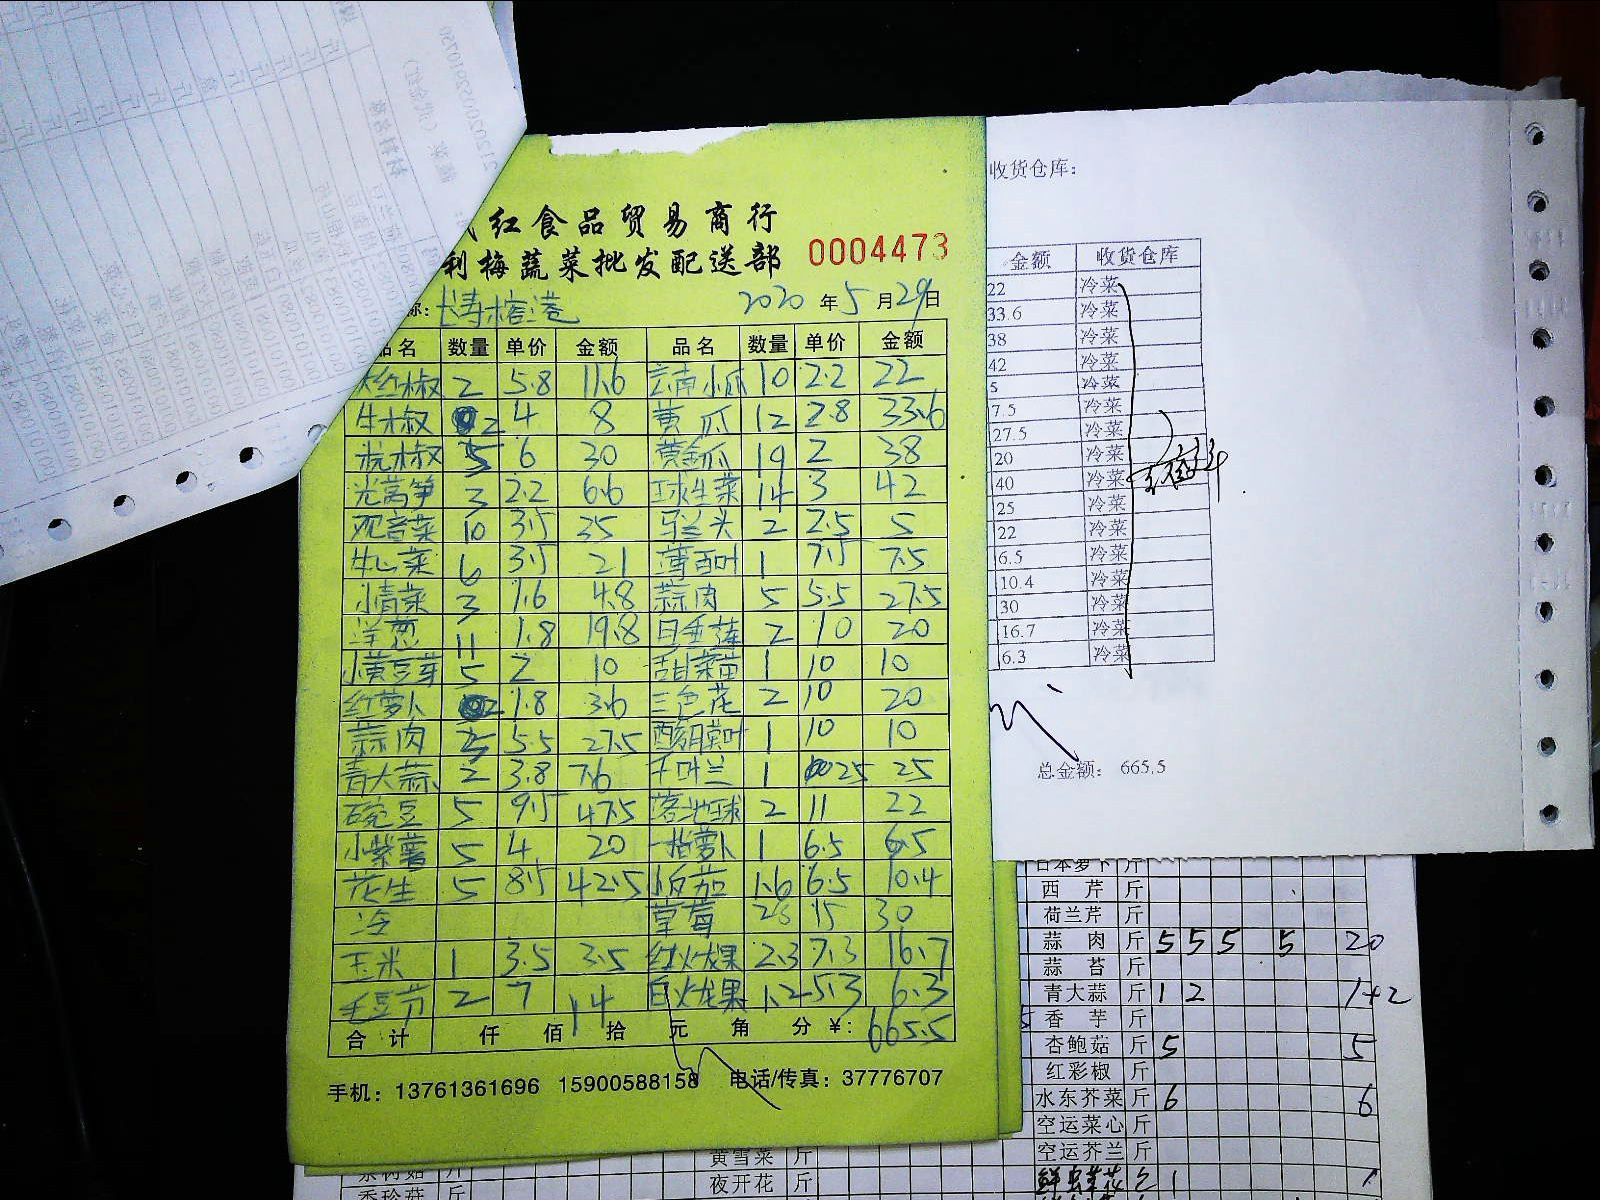 红食品贸易商行
利梅蔬菜批发配送部
0004473
2020年5月29日
品名 数量 单价 金额 品名 数量 单价 金额
大红椒 2 5.8 11.6 云南小瓜 10 2.2 22
牛椒 2 4 8 黄瓜 12 2.8 33.6
杭椒 5 6 30 黄金瓜 19 2 38
光莴笋 3 2.2 6.6 球生菜 14 3 42
观音菜 10 3.5 35 马兰头 2 2.5 5
牛心菜 6 3.5 21 薄百叶 1 7.5 7.5
小青菜 3 1.6 4.8 蒜肉 5 5.5 27.5
洋葱 11 1.8 19.8 2 10 20
小黄豆芽 5 2 10 甜菜苗 1 10 10
红萝卜 2 1.8 3.6 三色花 2 10 20
蒜肉 5 5.5 27.5 1 10 10
青大蒜 2 3.8 7.6 千叶兰 1 25 25
豌豆 5 9.5 47.5 落地球 2 11 22
小紫薯 5 4 20 一指萝卜 1 6.5 6.5
花生 5 8.5 42.5 小番茄 1.6 6.5 10.4
冷 草莓 2 15 30
玉米 1 3.5 3.5 红火龙果 2.3 7.3 16.7
毛豆节 2 7 14 白火龙果 1.2 5.3 6.3
合计 仟 佰 拾 元 角 分 ¥: 665.5
手机：13761361696 15900588158 电话/传真：37776707
收货仓库：
金额 收货仓库
22 冷菜
33.6 冷菜
38 冷菜
42 冷菜
5 冷菜
7.5 冷菜
27.5 冷菜
20 冷菜
40 冷菜
25 冷菜
22 冷菜
6.5 冷菜
10.4 冷菜
30 冷菜
16.7 冷菜
6.3 冷菜
总金额： 665.5
日本萝卜 斤
西芹 斤
荷兰芹 斤
蒜肉 斤 5 5 5 5 20
蒜苔 斤
青大蒜 斤 1 2 1+2
香芋 斤
杏鲍菇 斤 5 5
红彩椒 斤
水东芥菜 斤 6 6
空运菜心 斤
空运芥兰 斤
黄雪菜 斤
夜开花 斤